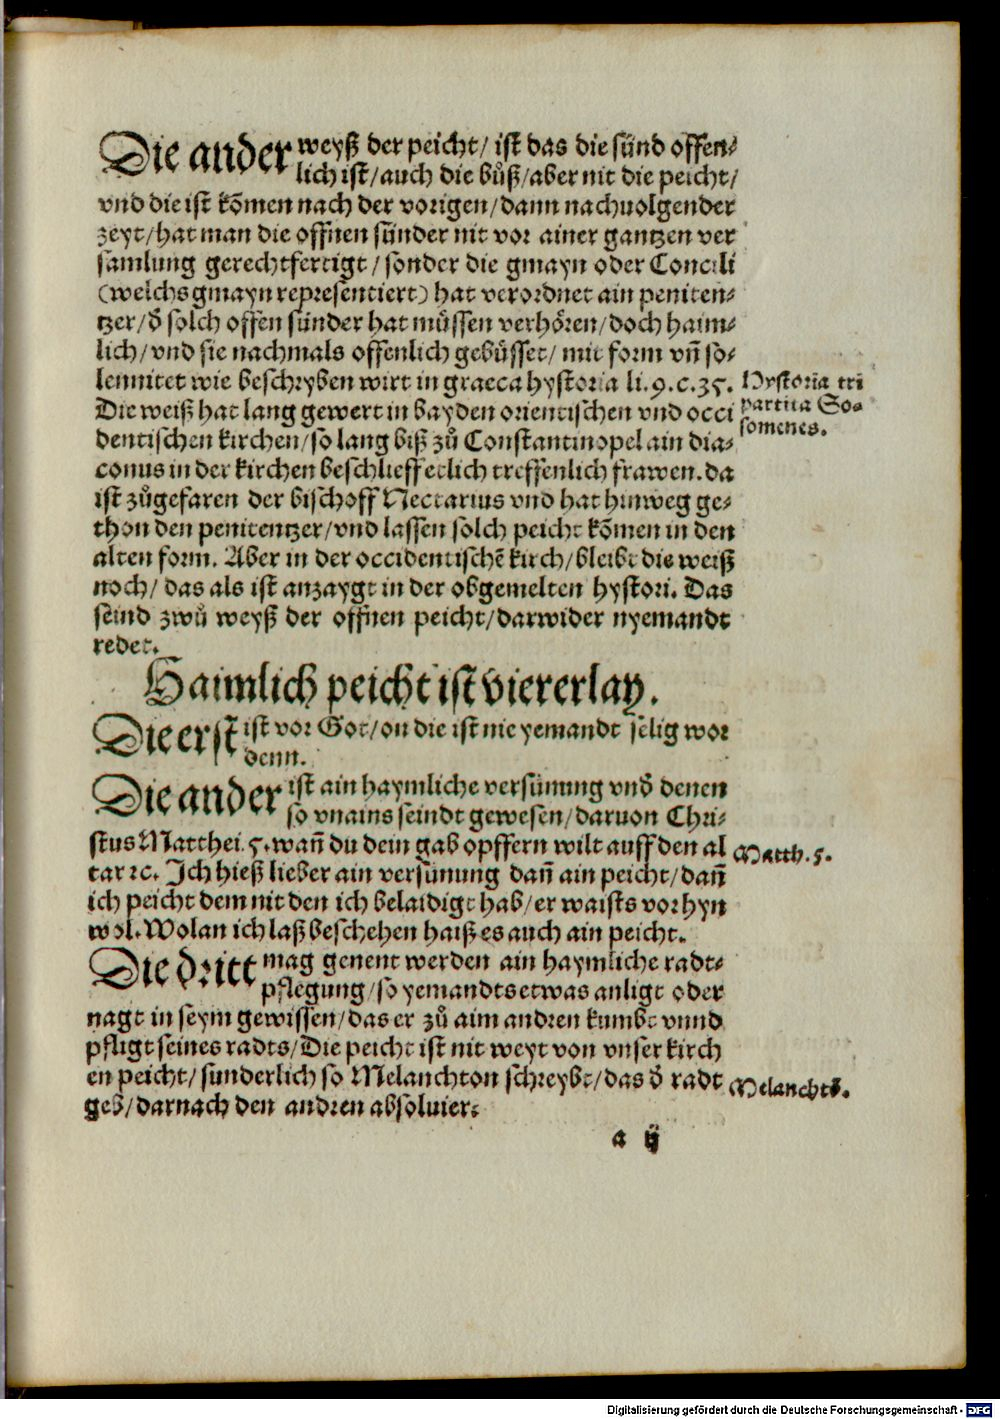 Die ander weyß der peicht/ ist das die sünd offen⸗
lich ist/auch die bůß/aber nit die peicht/
vnd die ist kōmen nach der vorigen/dann nachuolgender
zeyt/hat man die offnen sünder nit vor ainer gantzen ver
samlung gerechtfertigt/sonder die gmayn oder Concili
(welchs gmayn representiert) hat verordnet ain peniten⸗
tzer/d̄ solch offen sünder hat müssen verhören/doch haim⸗
lich/vnd sie nachmals offenlich gebüsset/ mit form vn̄ so⸗
lennitet wie beschryben wirt in graeca hystoria li.9.c.35.
Hystoria tri
partita So⸗
somenes.
Die weiß hat lang gewert in bayden orientischen vnd occi
dentischen kirchen/so lang biß zů Constantinopel ain dia⸗
conus in der kirchen beschlieff etlich treffenlich frawen.da
ist zůgefaren der bischoff Nectarius vnd hat hinweg ge⸗
thon den penitentzer/vnd lassen solch peicht kōmen in den
alten form. Aber in der occidentischē kirch/bleibt die weiß
noch/ das als ist anzaygt in der obgemelten hystori. Das
seind zwů weyß der offnen peicht/darwider nyemandt
redet.
Haimlich peicht ist viererlay.
Die erst ist vor Got/on die ist nie yemandt selig wor
denn.
Die ander ist ain haymliche versünung vnd̄ denen
so vnains seindt gewesen/daruon Chri⸗
stus Matthei.5.wan̄ du dein gab opffern wilt auff den al
Matth.5.
tar ⁊c. Ich hieß lieber ain versünung dan̄ ain peicht/dan̄
ich peicht dem nit den ich belaidigt hab/er waists vorhyn
wol.Wolan ich laß beschehen haiß es auch ain peicht.
Die dritt mag genent werden ain haymliche radt⸗
pflegung/so yemandts etwas anligt oder
nagt in seym gewissen/das er zů aim andren kumbt vnnd
pfligt seines radts/Die peicht ist nit weyt von vnser kirch
en peicht/sunderlich so Melanchton schreybt/das d̄ radt
Melanchtō.
geb/darnach den andren absoluier.
a ij
Digitalisierung gefördert durch die Deutsche Forschungsgemeinschaft - DFG